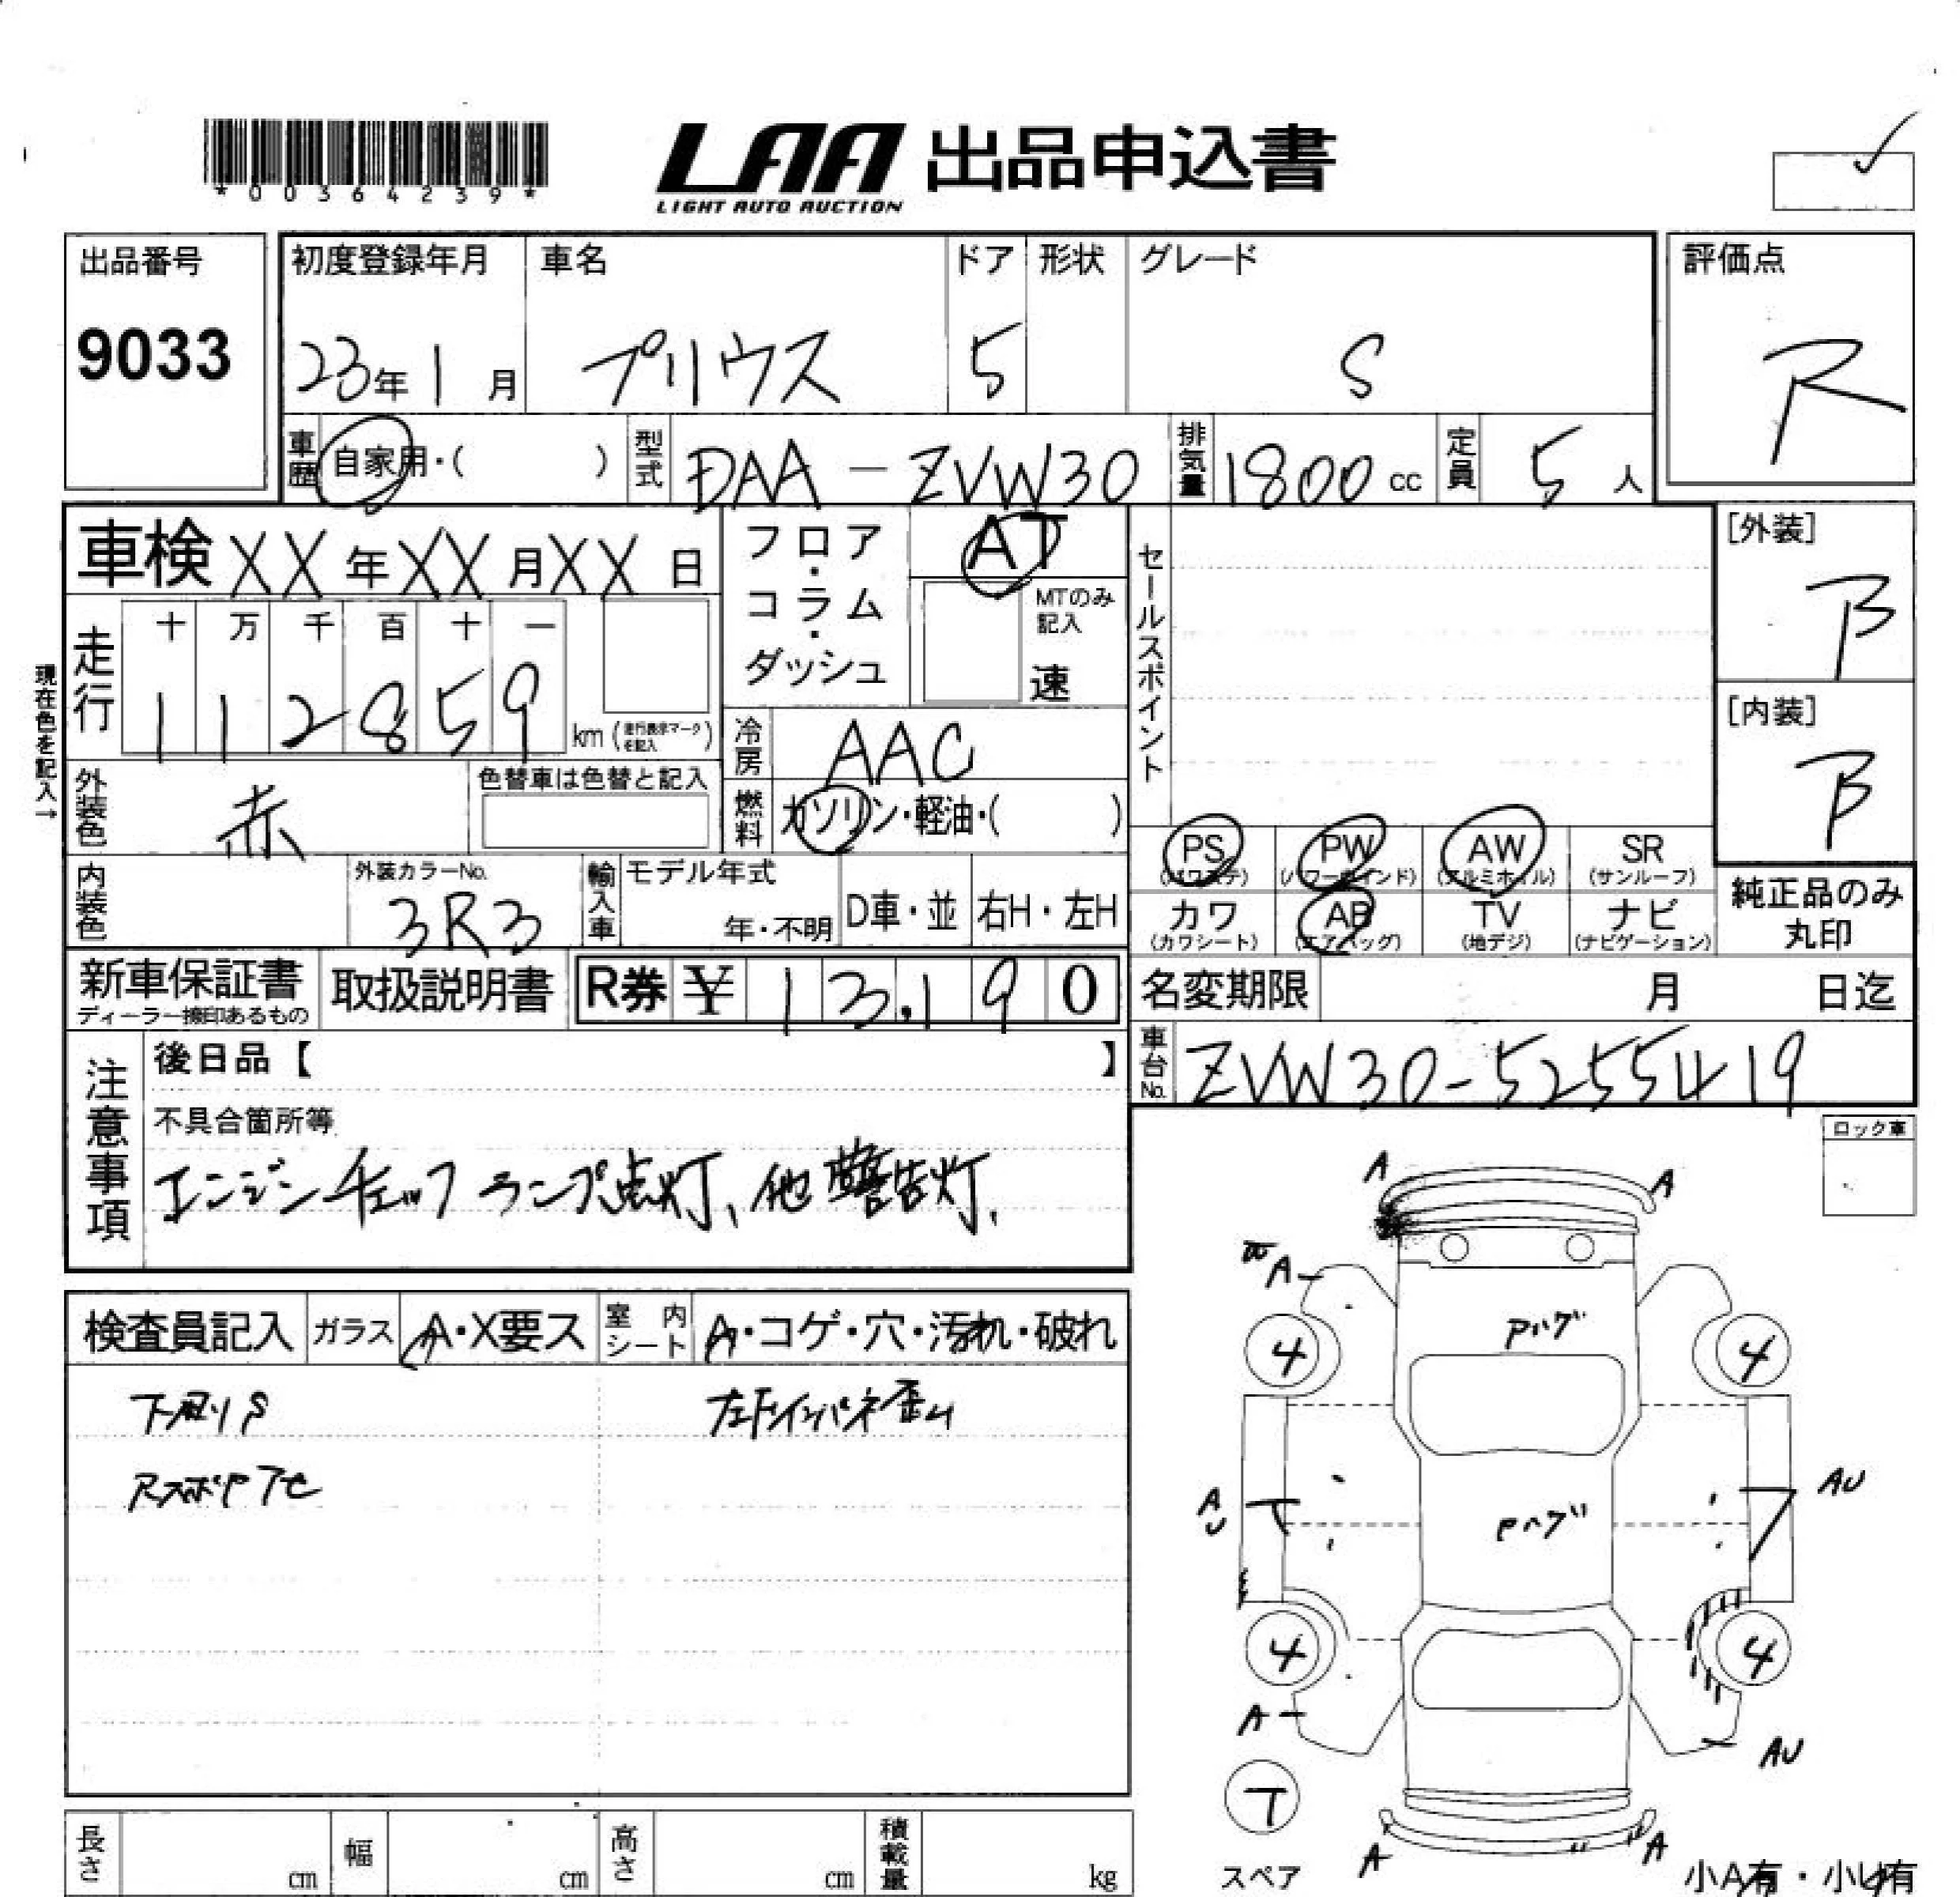 *00364239*
LAA 出品申込書
LIGHT AUTO AUCTION
出品番号 初度登録年月 車名 ドア 形状 グレード 評価点
9033 23年 1月 プリウス 5 S R
車歴 自家用・( ) 型式 DAA-ZVW30 排気量 1800cc 定員 5人
車検 XX年XX月XX日 フロア・コラム・ダッシュ AT セールスポイント [外装] B
MTのみ記入 速
走行 十 万 千 百 十 一
112859 km (走行表示マークを記入)
[内装] B
現在色を記入→
冷房 AAC
外装色 赤 色替車は色替と記入 燃料 ガソリン・軽油・( )
PS (パワステ) PW (パワーウインド) AW (アルミホイル) SR (サンルーフ)
内装色 外装カラーNo. 3R3 輸入車 モデル年式 年・不明 D車・並 右H・左H
カワ (カワシート) AB (エアバッグ) TV (地デジ) ナビ (ナビゲーション) 純正品のみ丸印
新車保証書 ディーラー捺印あるもの 取扱説明書 R券 ¥ 13,190 名変期限 月 日迄
注意事項 後日品【 】 車台No. ZVW30-5255419
不具合箇所等
エンジンチェックランプ点灯、他警告灯、
ロック車
検査員記入 ガラス A・X要ス 室内シート A・コゲ・穴・汚れ・破れ
下廻りS 左下インパネ歪ム
A A
A
Pハゲ
4 4
AU AU
Pハゲ
4 4
A AU
T
スペア
A A
小A有・小U有
長さ cm 幅 cm 高さ cm 積載量 kg